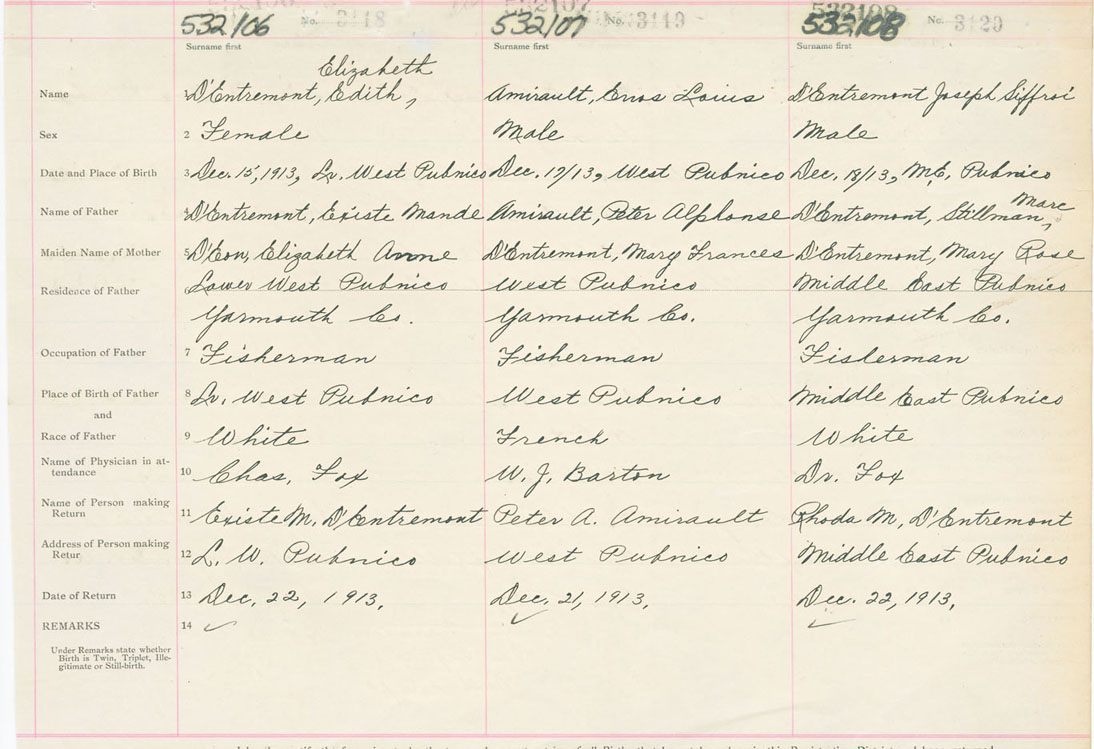 532106 No. 3118 532107 3119 532108 No. 3120
Surname first Surname first Surname first
Elizabeth
Name 1 D'Entremont, Edith, Amirault, Enos Loius D'Entremont Joseph Siffroi
Sex 2 Female Male Male
Date and Place of Birth 3 Dec. 15, 1913, Lr. West Pubnico Dec. 19/13, West Pubnico Dec. 18/13, M.E. Pubnico
Marc
Name of Father 4 D'Entremont, Existe Mande Amirault, Peter Alphonse D'Entremont, Stillman,
Maiden Name of Mother 5 D'Eon, Elizabeth Anne D'Entremont, Mary Frances D'Entremont, Mary Rose
Residence of Father Lower West Pubnico West Pubnico Middle East Pubnico
Yarmouth Co. Yarmouth Co. Yarmouth Co.
Occupation of Father 7 Fisherman Fisherman Fislerman
Place of Birth of Father 8 Lr. West Pubnico West Pubnico Middle East Pubnico
and
Race of Father 9 White French White
Name of Physician in at-
tendance 10 Chas. Fox W. J. Barton Dr. Fox
Name of Person making
Return 11 Existe M. D'Entremont Peter A. Amirault Rhoda M, D'Entremont
Address of Person making
Retur 12 L. W. Pubnico West Pubnico Middle East Pubnico
Date of Return 13 Dec. 22, 1913. Dec. 21, 1913. Dec. 22, 1913.
REMARKS 14
Under Remarks state whether
Birth is Twin, Triplet, Ille-
gitimate or Still-birth.